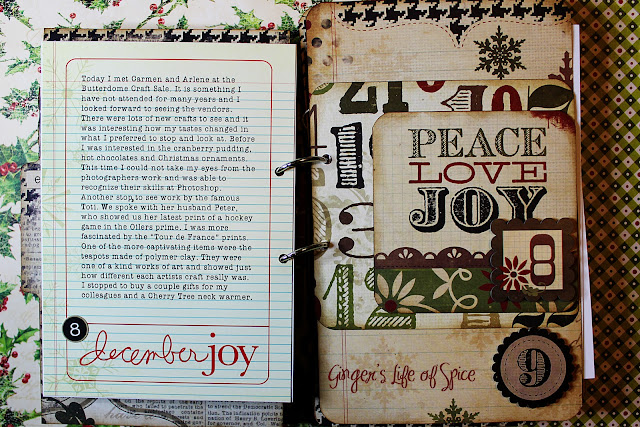 Today I met Carmen and Arlene at the
Butterdome Craft Sale. It is something I
have not attended for many years and I
looked forward to seeing the vendors.
There were lots of new crafts to see and it
was interesting how my tastes changed in
what I preferred to stop and look at. Before
I was interested in the cranberry pudding,
hot chocolates and Christmas ornaments.
This time I could not take my eyes from the
photographers work and was able to
recognize their skills at Photoshop.
Another stop to see work by the famous
Toti. We spoke with her husband Peter,
who showed us her latest print of a hockey
game in the Oilers prime. I was more
fascinated by the "Tour de France" prints.
One of the more captivating items were the
teapots made of polymer clay. They were
one of a kind works of art and showed just
how different each artists craft really was.
I stopped to buy a couple gifts for my
colleagues and a Cherry Tree neck warmer.
8
december joy
21
10
3
12
PEACE
LOVE
JOY
8
9
Ginger's Life of Spice